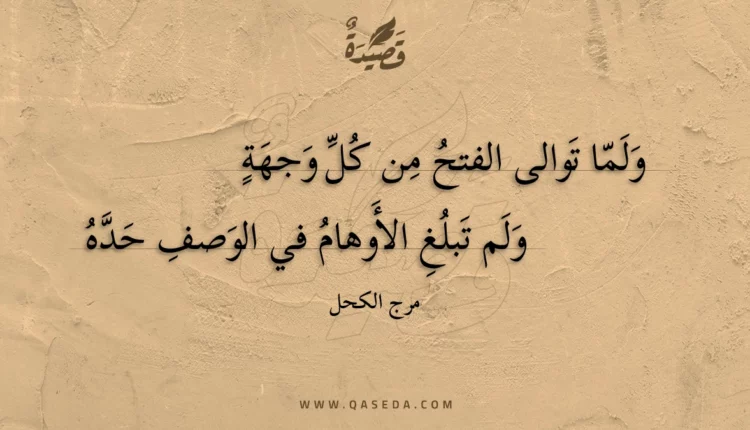 قَصِيدَةٌ
وَلَمّا تَوالى الفتحُ مِن كُلِّ وَجهَةٍ
وَلَم تَبلُغِ الأَوهامُ في الوَصفِ حَدَّهُ
مرج الكحل
WWW.QASEDA.COM